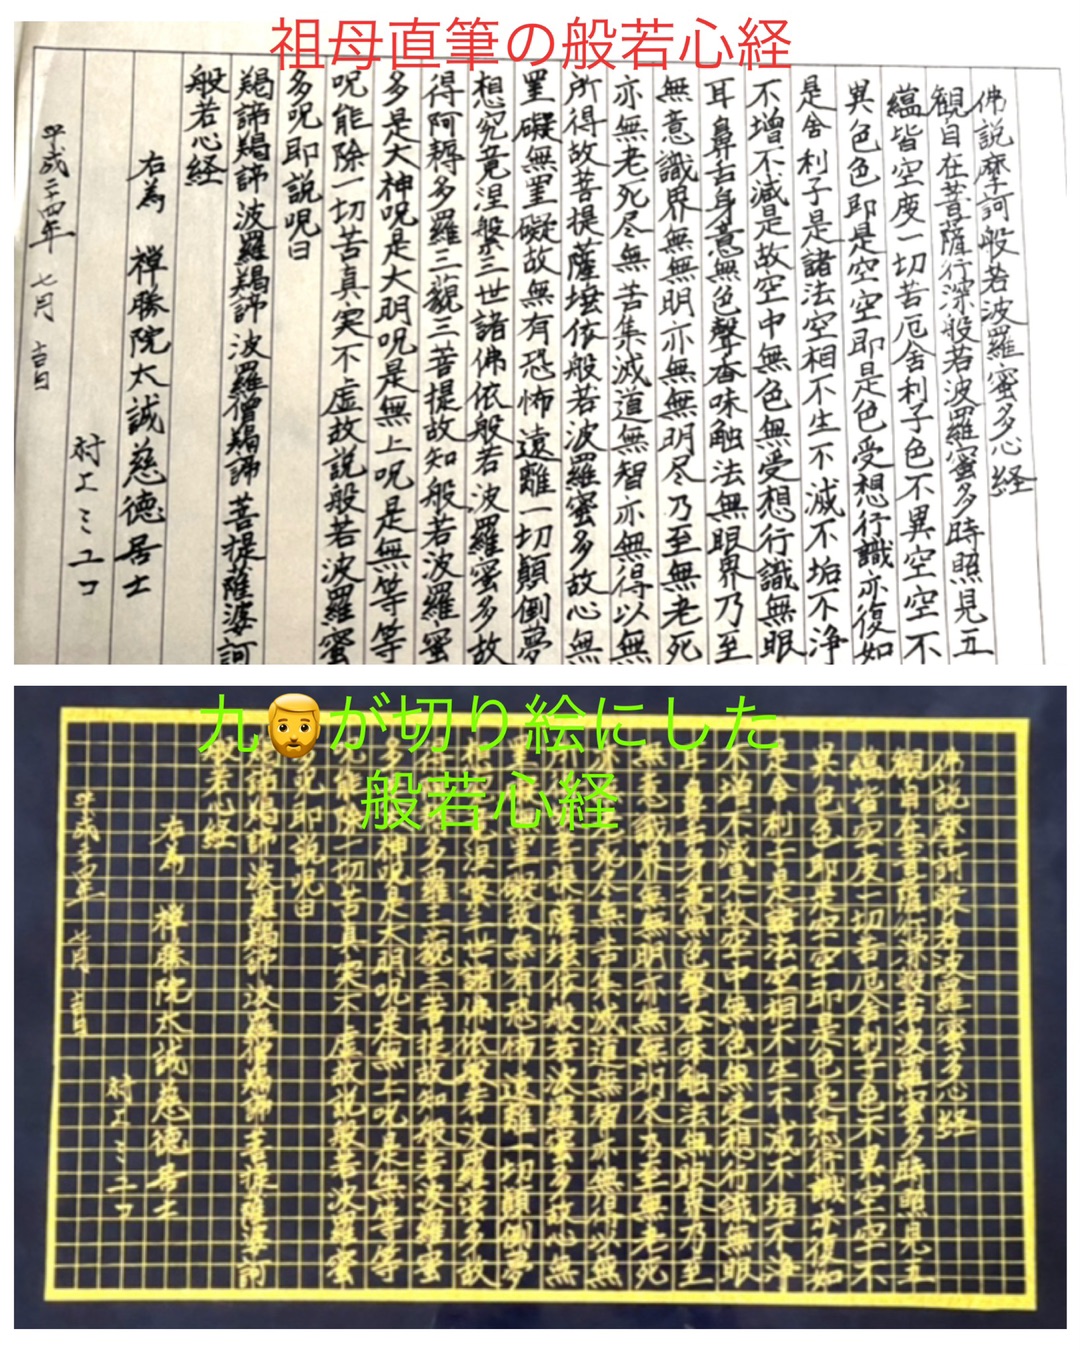 祖母直筆の般若心経
佛説摩訶般若波羅蜜多心経
観自在菩薩行深般若波羅蜜多時照見五
蘊皆空度一切苦厄舎利子色不異空空不
異色色即是空空即是色受想行識亦復如
是舎利子是諸法空相不生不滅不垢不浄
不増不減是故空中無色無受想行識無眼
耳鼻舌身意無色聲香味触法無眼界乃至
無意識界無無明亦無無明尽乃至無老死
亦無老死尽無苦集滅道無智亦無得以無
所得故菩提薩埵依般若波羅蜜多故心無
罣礙無罣礙故無有恐怖遠離一切顛倒夢
想究竟涅槃三世諸佛依般若波羅蜜多故
得阿耨多羅三藐三菩提故知般若波羅蜜
多是大神呪是大明呪是無上呪是無等等
呪能除一切苦真実不虚故説般若波羅蜜
多呪即説呪曰
羯諦羯諦 波羅羯諦 波羅僧羯諦 菩提薩婆訶
般若心経
右為 禅勝院太誠慈德居士
村上ミユコ
平成二十四年 七月 吉日
九🧔が切り絵にした
般若心経
佛説摩訶般若波羅蜜多心経
観自在菩薩行深般若波羅蜜多時照見五
蘊皆空度一切苦厄舎利子色不異空空不
異色色即是空空即是色受想行識亦復如
是舎利子是諸法空相不生不滅不垢不浄
不増不減是故空中無色無受想行識無眼
耳鼻舌身意無色聲香味触法無眼界乃至
無意識界無無明亦無無明尽乃至無老死
死尽無苦集滅道無智亦無得以無
菩提薩埵依般若波羅蜜多故心無
罣礙故無有恐怖遠離一切顛倒夢
涅槃三世諸佛依般若波羅蜜多故
多羅三藐三菩提故知般若波羅蜜
多神呪是大明呪是無上呪是無等等
呪能除一切苦真実不虚故説般若波羅蜜
呪即説呪曰
羯諦羯諦 波羅羯諦 波羅僧羯諦 菩提薩婆訶
般若心経
右為 禅勝院太誠慈德居士
村上ミユコ
平成二十四年 七月 吉日